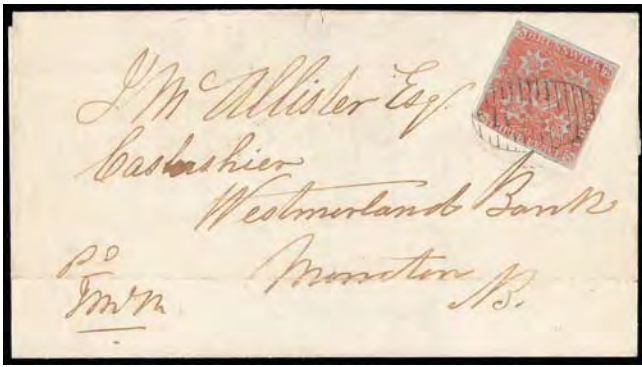 BRUNSWICK
J McAllister Esq
Cashier
Westmorland Bank
Moncton
NB.
PD